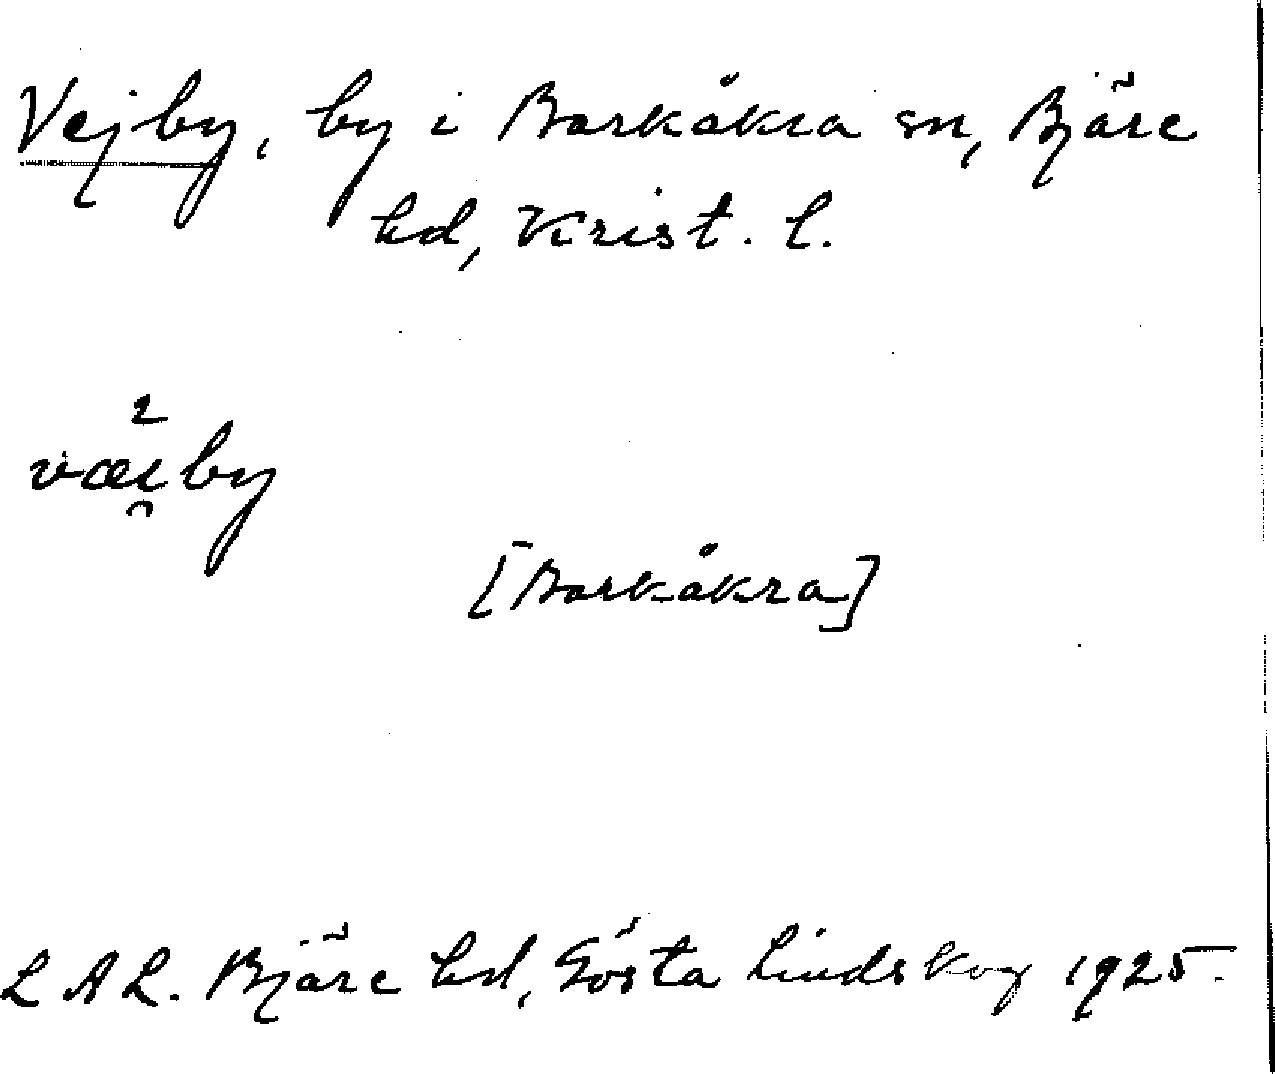 Vejby, by i Barkåkra sn, Bjäre
hd, Krist. l.
2
væi̯by
[Barkåkra]
LAL. Bjäre hd, Gösta Lindskog 1925.